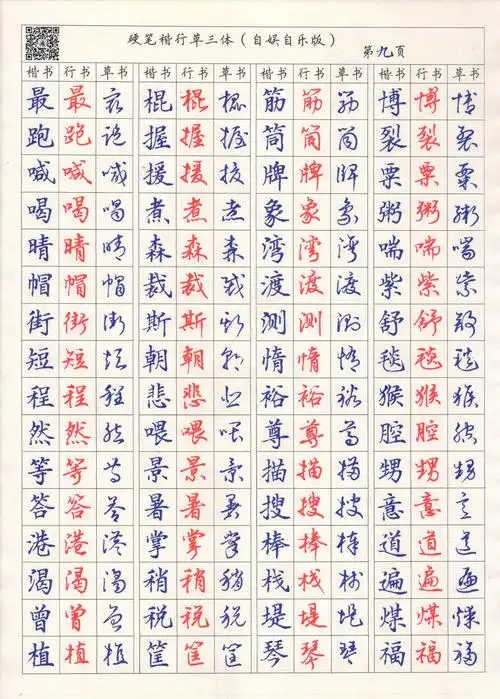 硬笔楷行草三体(自娱自乐版)
第九页
楷书 行书 草书 楷书 行书 草书 楷书 行书 草书 楷书 行书 草书
最 最 最 棍 棍 棍 筋 筋 筋 博 博 博
跑 跑 跑 握 握 握 筒 筒 筒 裂 裂 裂
喊 喊 喊 援 援 援 牌 牌 牌 粟 粟 粟
喝 喝 喝 煮 煮 煮 象 象 象 粥 粥 粥
晴 晴 晴 森 森 森 湾 湾 湾 喘 喘 喘
帽 帽 帽 裁 裁 裁 渡 渡 渡 紫 紫 紫
街 街 街 斯 斯 斯 测 测 测 舒 舒 舒
短 短 短 朝 朝 朝 惰 惰 惰 毯 毯 毯
程 程 程 悲 悲 悲 裕 裕 裕 猴 猴 猴
然 然 然 喂 喂 喂 尊 尊 尊 腔 腔 腔
等 等 等 景 景 景 描 描 描 甥 甥 甥
答 答 答 暑 暑 暑 搜 搜 搜 意 意 意
港 港 港 掌 掌 掌 棒 棒 棒 道 道 道
渴 渴 渴 稍 稍 稍 栈 栈 栈 遍 遍 遍
曾 曾 曾 税 税 税 堤 堤 堤 煤 煤 煤
植 植 植 筐 筐 筐 琴 琴 琴 福 福 福